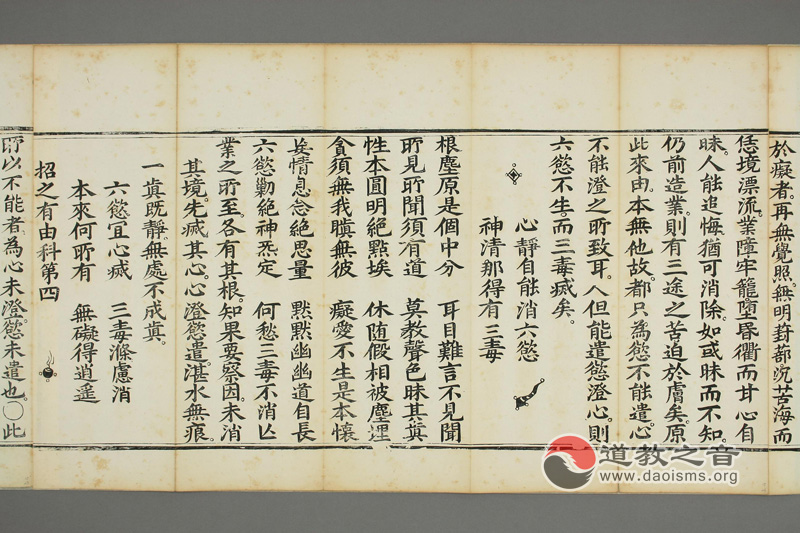 於癡者。再無覺照。無明封部沉苦海。而
恁境漂流。業障牢籠。墮昏衢而甘心自
昧。人能追悔。猶可消除。如或昧而不知。
仍前造業。則有三途之苦迫於膚矣。原
此來由。本無他故。都只為慾不能遣。心
不能澄之所致耳。人但能遣慾澄心。則
六慾不生。而三毒滅矣。
心靜自能消六慾
神清那得有三毒
根塵原是個中分　耳目難言不見聞
所見所聞須有道　莫教聲色昧其眞
性本圓明絕點埃　休随假相被塵埋
貪須無我嗔無彼　癡愛不生是本懷
妄情息念絕思量　黙黙幽幽道自長
六慾勦絕神炁定　何愁三毒不消亡
業之所至。各有其根。知果要察因。未消
其境。先滅其心。心澄慾遣。湛水無痕。
一眞既靜。無處不成眞。
六慾宜心滅　三毒滌慮消
本來何所有　無礙得逍遥
招之有由科第四
所以不能者。為心未澄。慾未遣也。〇此
道教之音
www.daoisms.org